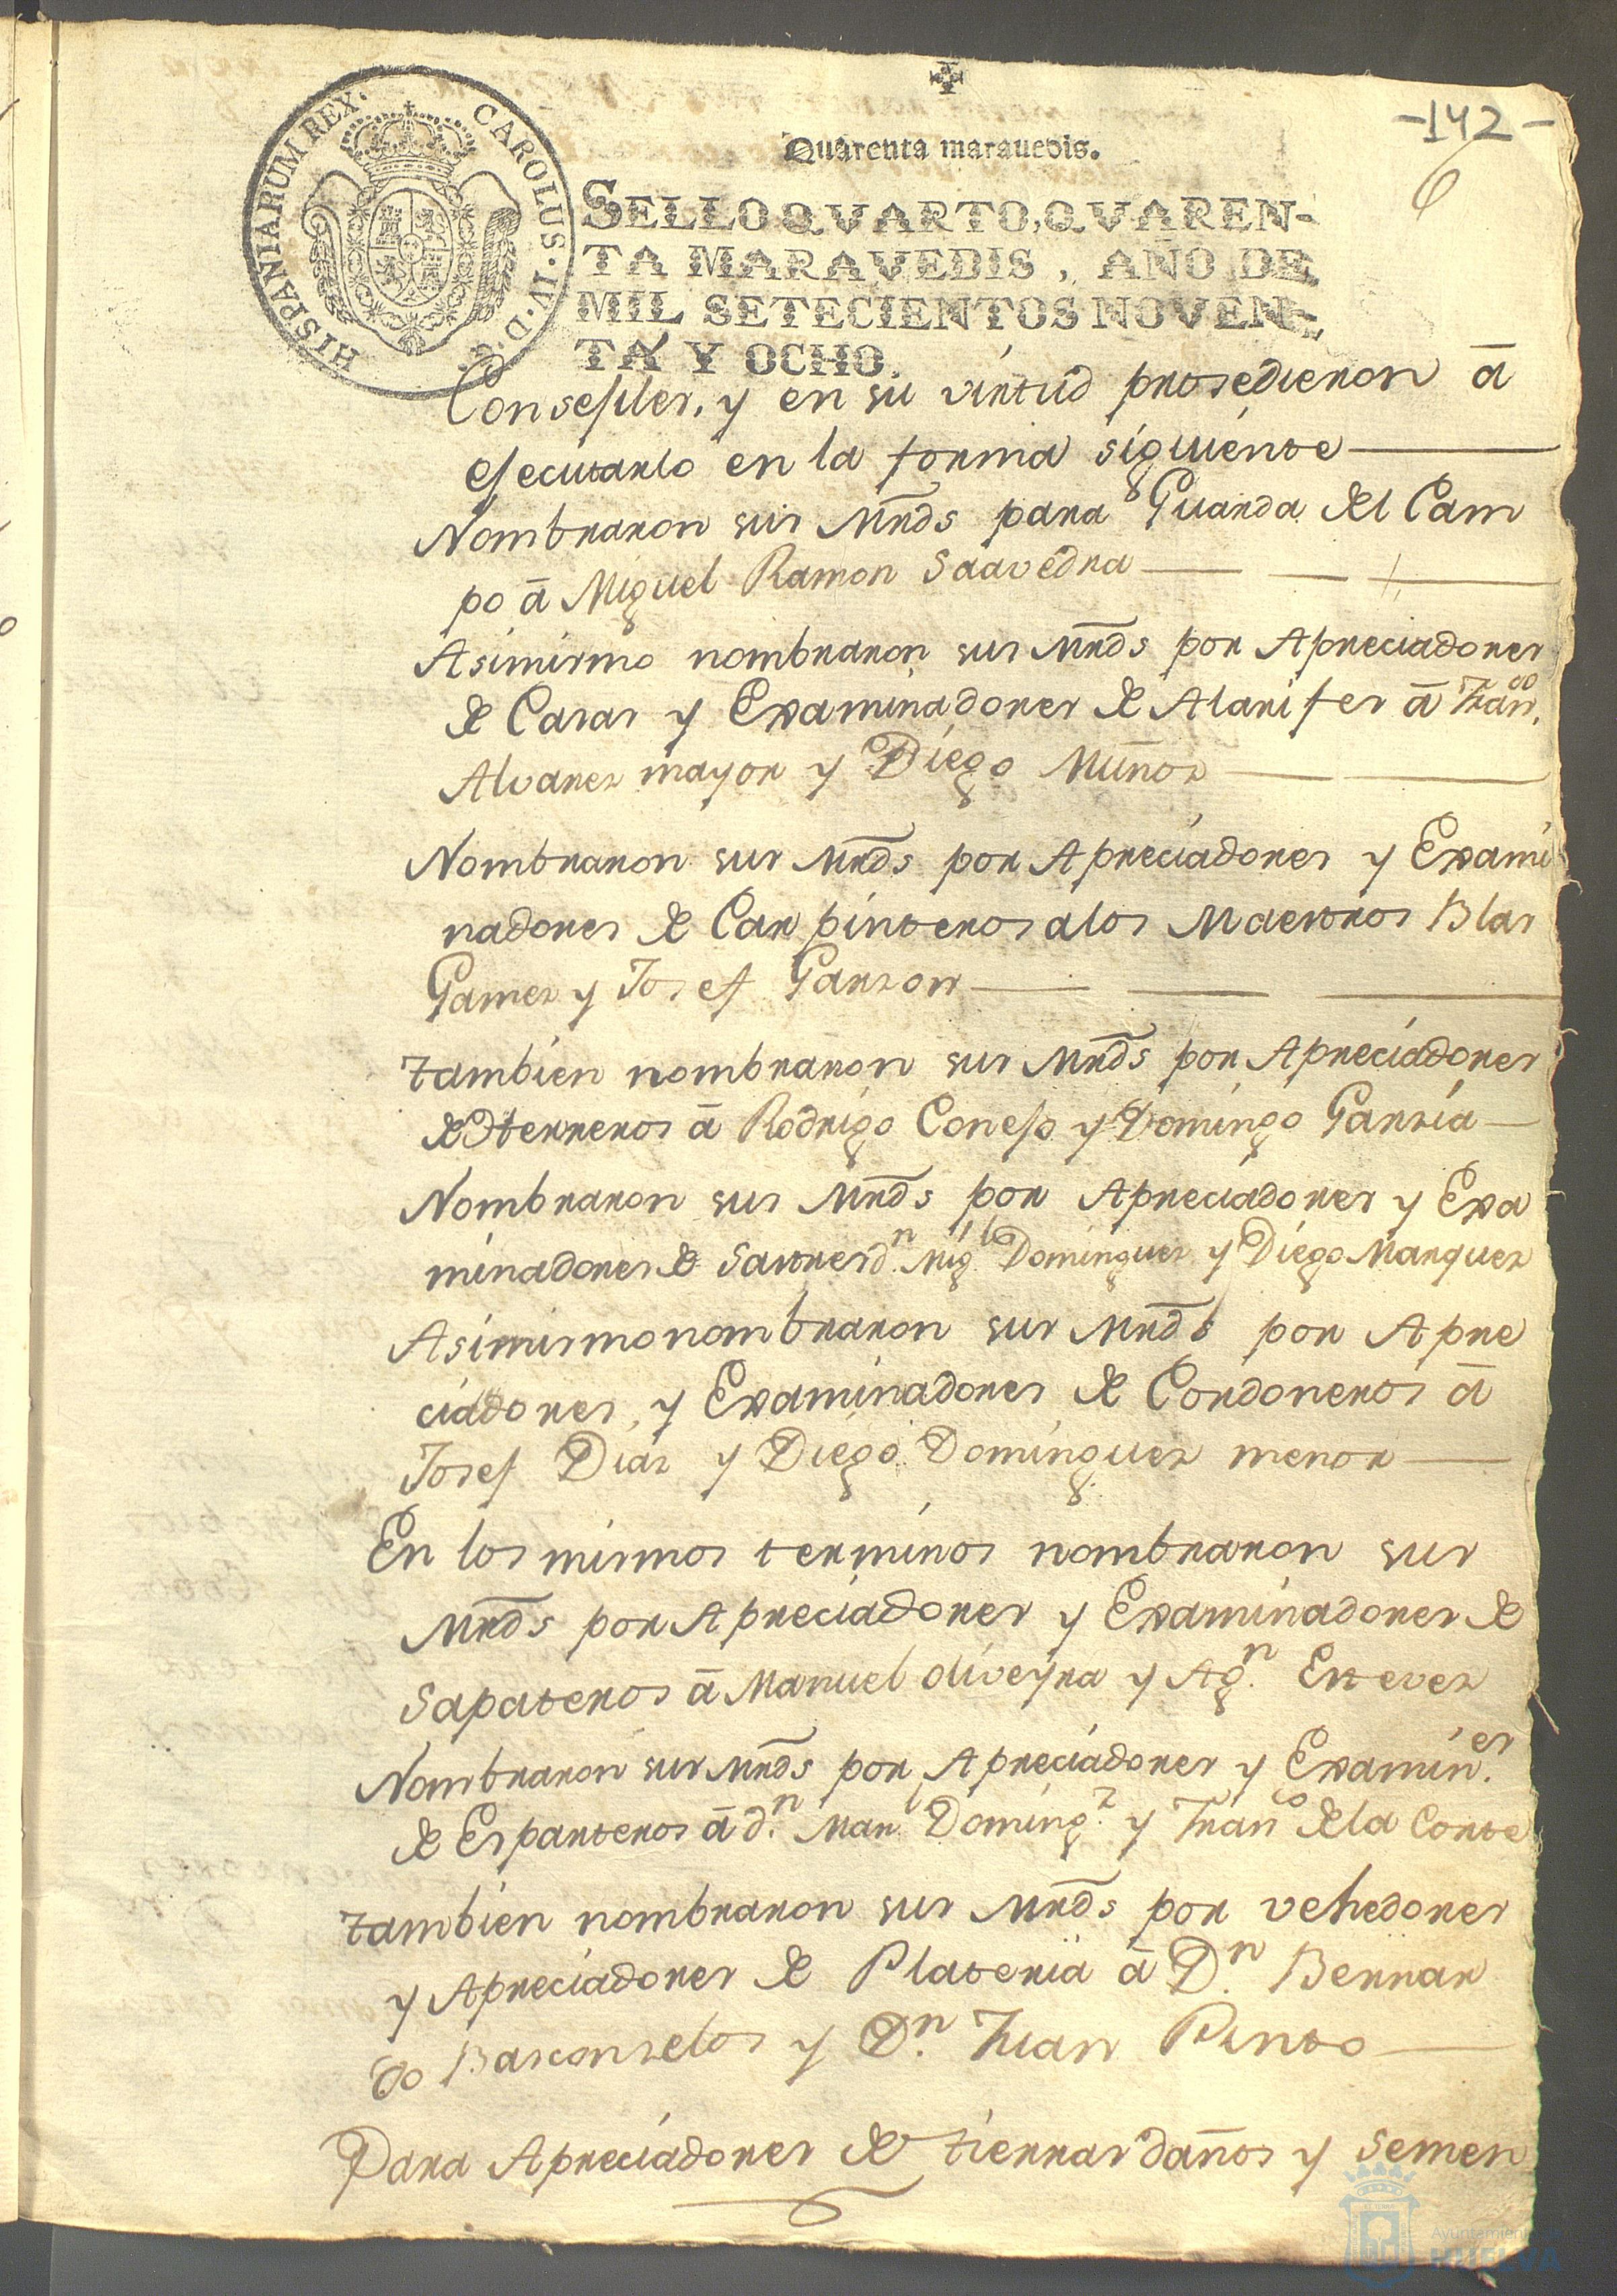 -142-
6
Quarenta marauedis.
HISPANIARUM REX. CAROLUS·IV·D·G
SELLO QVARTO, QVAREN-
TA MARAVEDIS, AÑO DE
MIL SETECIENTOS NOVEN-
TA Y OCHO.
Consejiles, y en su virtud prosedieron á
ejecutarlo en la forma siguiente
Nombraron sus Mrds para Guarda del Cam
po á Miguel Ramon Saavedra
Asimismo nombraron sus Mrds por Apreciadores
de Casas y Examinadores de Alarifes á Franco.
Alvares mayor y Diego Muñoz
Nombraron sus Mrds por Apreciadores y Exami
nadores de Carpinteros a los Maestros Blas
Gamez y Josef Garzon
tambien nombraron sus Mrds por Apreciadores
de Herreros á Rodrigo Conejo y Domingo Garzia
Nombraron sus Mrds por Apreciadores y Exa
minadores de Sastres dn. Migl Dominguez y Diego Marquez
Asimismo nombraron sus Mrds por Apre
ciadores, y Examinadores de Cordoneros á
Josef Diaz y Diego Dominguez menor
En los mismos terminos nombraron sus
Mrds por Apreciadores y Examinadores de
Sapateros á Manuel Oliveyra y Agn. Estevez
Nombraron sus Mrds por Apreciadores y Examin.es
de Esparteros á dn. Manl Doming.z y Franco de la Corte
tambien nombraron sus Mrds por vehedores
y Apreciadores de Plateria á Dn. Bernar
do Basconzelos y Dn. Juan Pinto
Para Apreciadores de tierras daños y semen
Ayuntamiento de
HUELVA